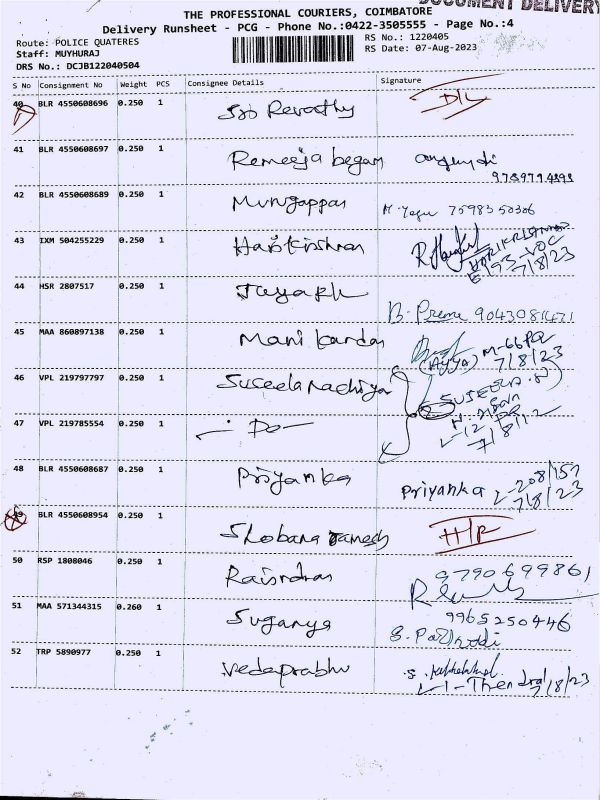 DOCUMENT DELIVERY
THE PROFESSIONAL COURIERS, COIMBATORE
Delivery Runsheet - PCG - Phone No.:0422-3505555 - Page No.:4
Route: POLICE QUATERES
RS No.: 1220405
Staff: MUYHURAJ
RS Date: 07-Aug-2023
DRS No.: DCJB122040504
S No Consignment No Weight PCS Consignee Details Signature
40 BLR 4550608696 0.250 1 Sri Revathy D/L
41 BLR 4550608697 0.250 1 Rameeja begam
9789774893
42 BLR 4550608689 0.250 1 Murugappan 7598350306
43 IXM 504255229 0.250 1 Harikrishnan HARIKRISHNAN
E/93-VOC
7/8/23
44 HSR 2807517 0.250 1
B. Prema 9043081471
45 MAA 860897138 0.250 1 Mani kandan M-66PQ
(Ayya) 7/8/23
46 VPL 219797797 0.250 1 Suseela nachiya
SUSEELA.N
47 VPL 219785554 0.250 1 - Do -
48 BLR 4550608687 0.250 1 Priyanka
Priyanka L-208/157
7/8/23
49 BLR 4550608954 0.250 1 Shobana ramesh
50 RSP 1808046 0.250 1 9790699861
51 MAA 571344315 0.260 1 Suganya 9965250446
52 TRP 5890977 0.250 1 Vedaprabhu
L-1-Thendral
7/8/23